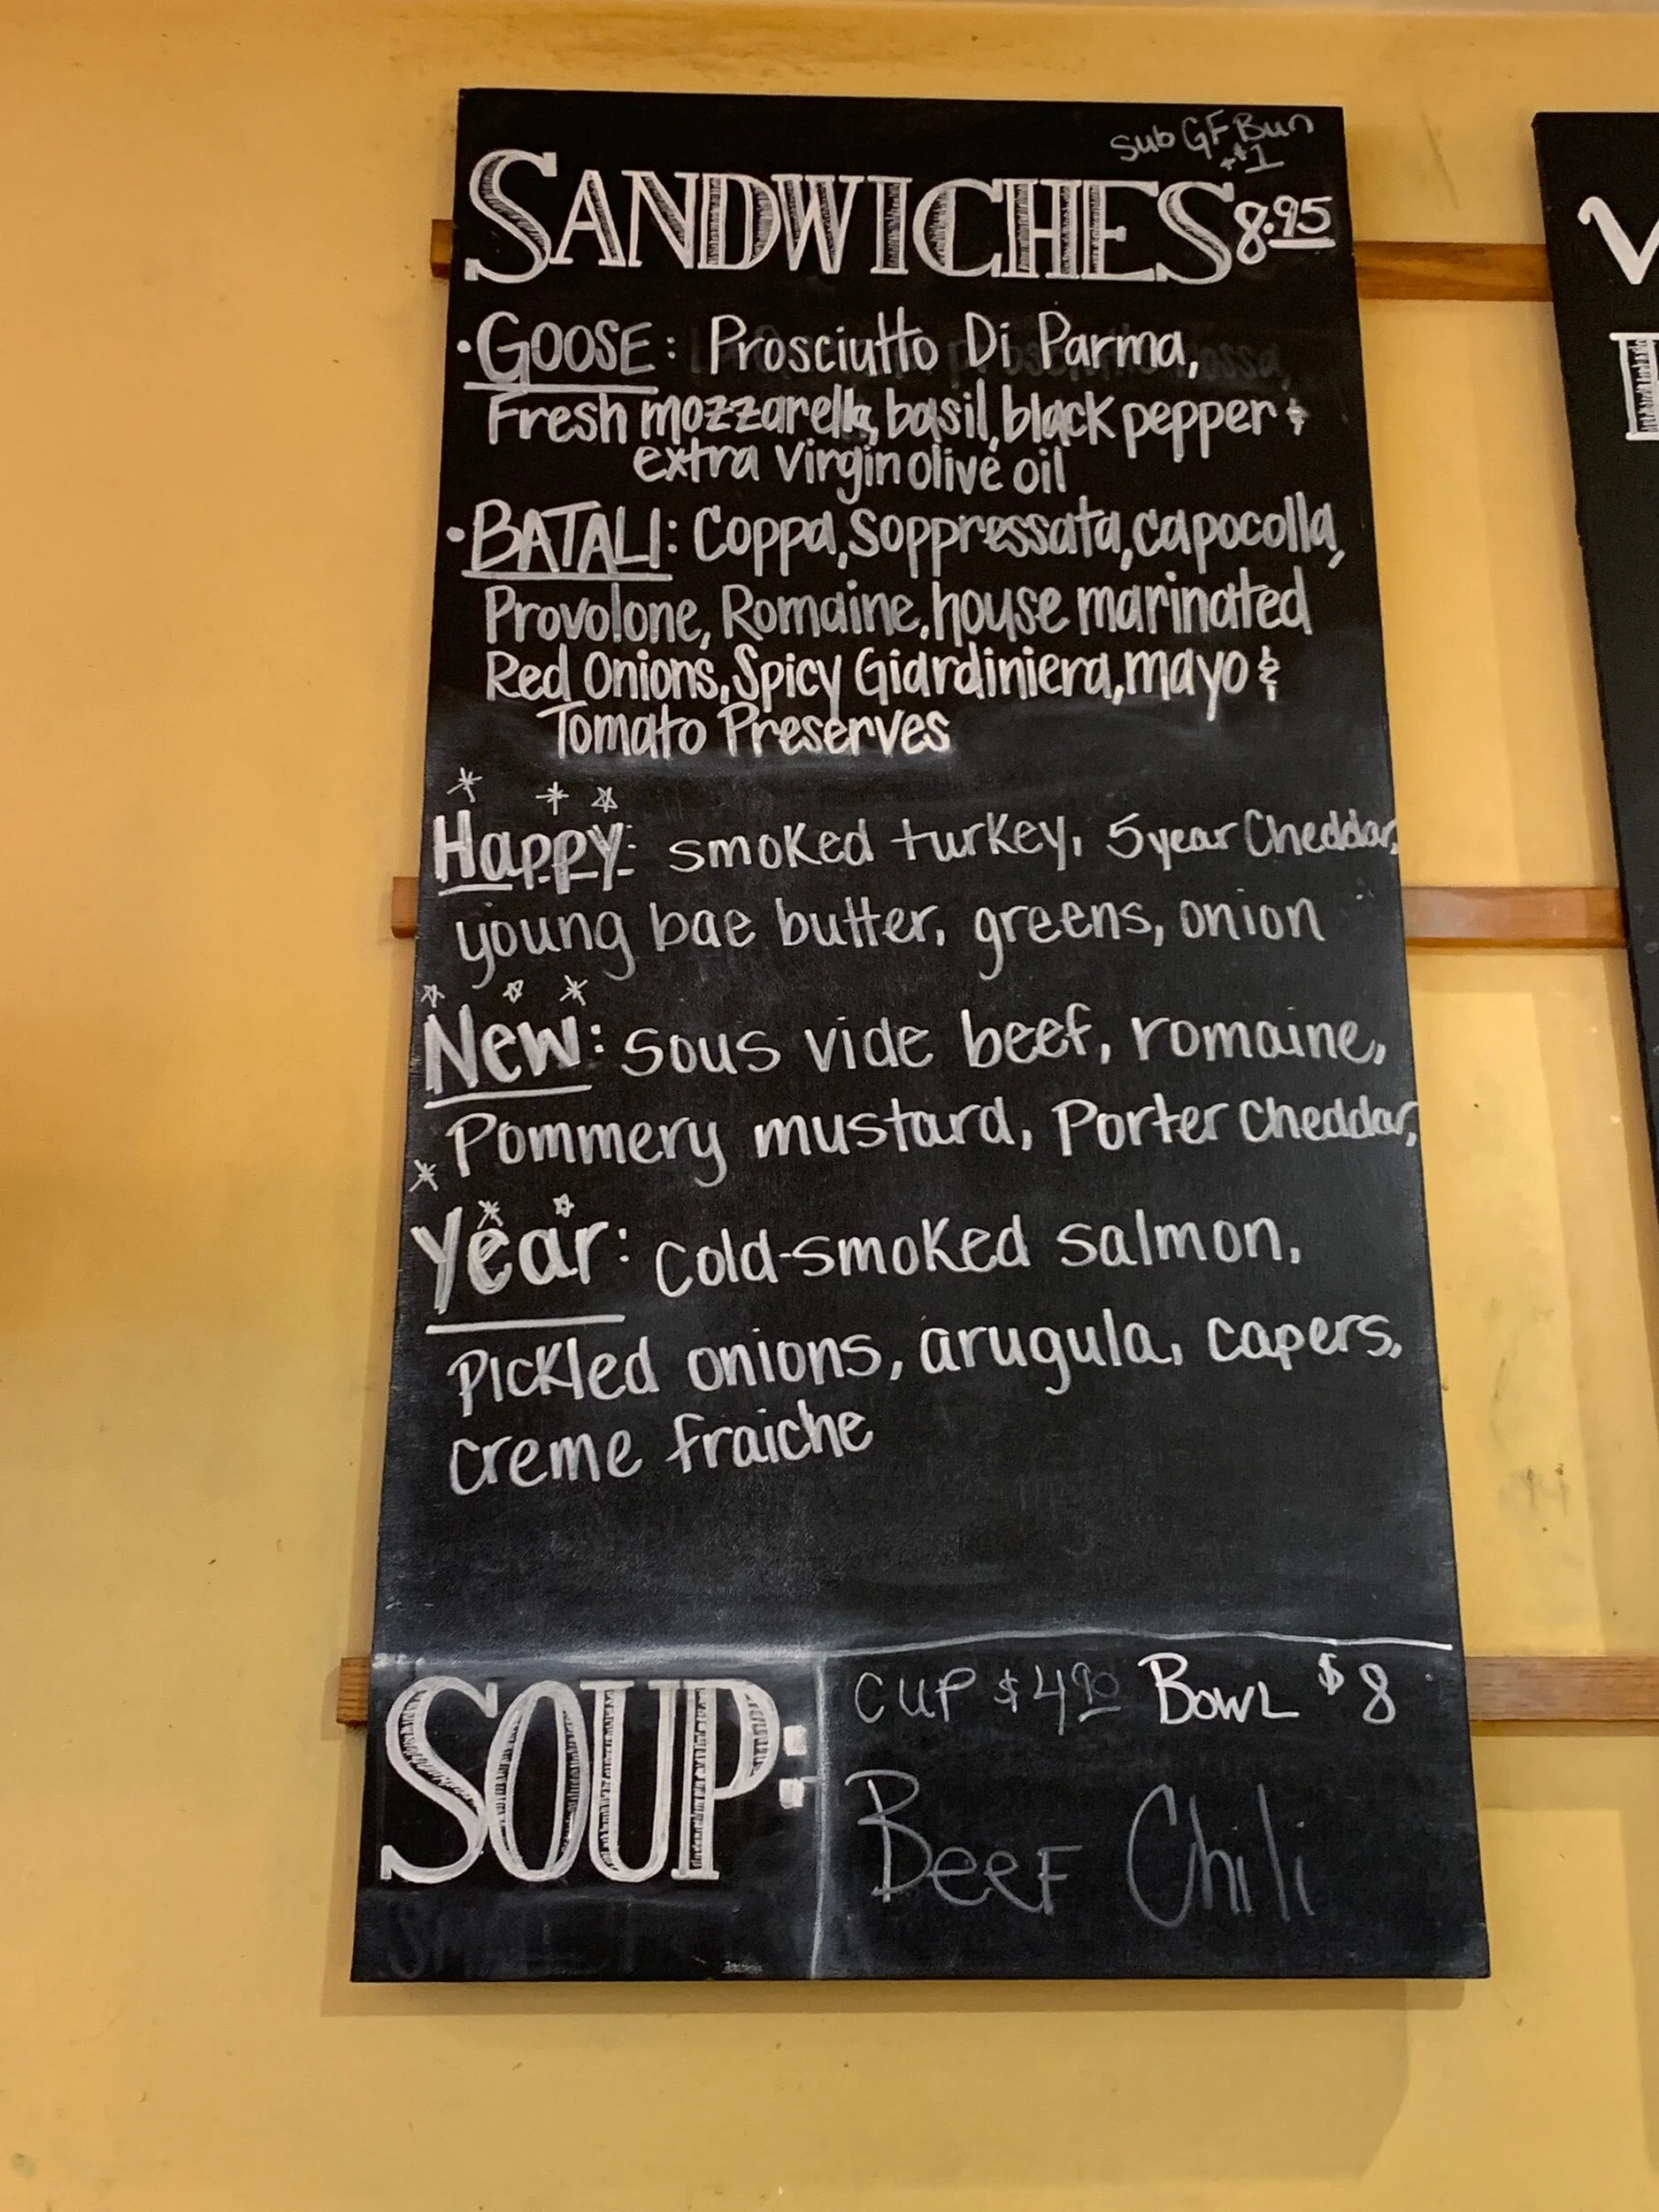 Sub GF Bun
+$1
SANDWICHES 8.95
• GOOSE: Prosciutto Di Parma,
Fresh mozzarella, basil, black pepper &
extra Virgin olive oil
• BATALI: Coppa, Soppressata, capocolla,
Provolone, Romaine, house marinated
Red Onions, Spicy Giardiniera, mayo &
Tomato Preserves
Happy: smoked turkey, 5 year Cheddar,
young bae butter, greens, onion
New: Sous vide beef, romaine,
Pommery mustard, Porter Cheddar,
Year: Cold-smoked salmon,
Pickled onions, arugula, capers,
creme fraiche
SOUP:
CUP $4.90 BOWL $8
Beef Chili